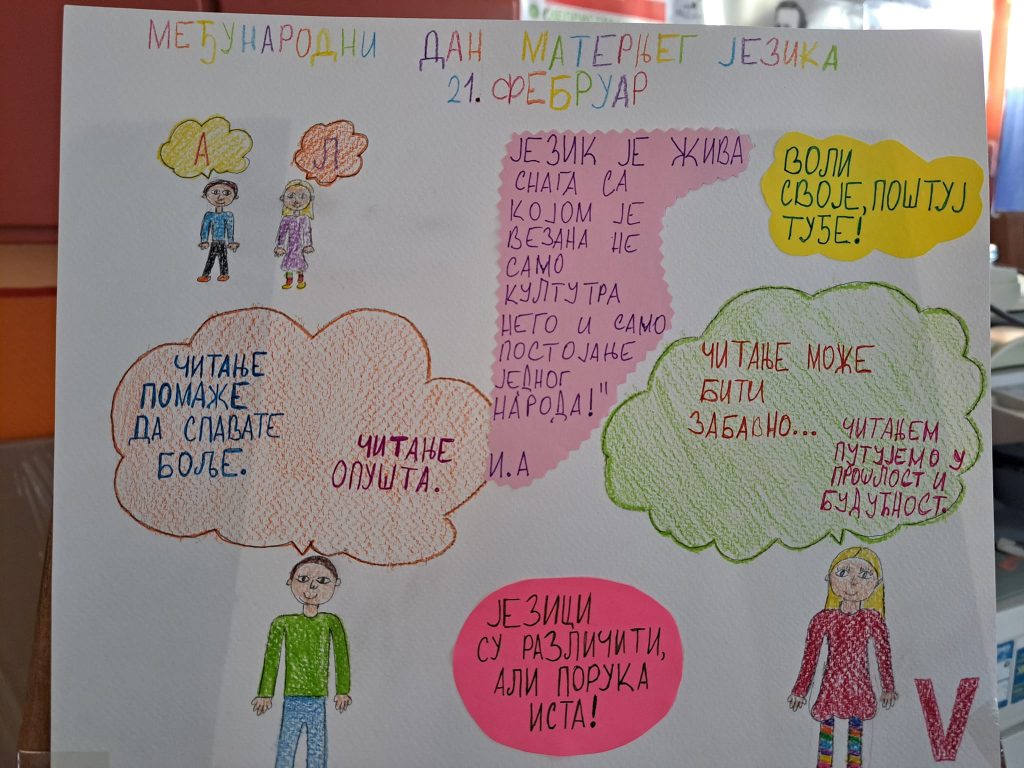 МЕЂУНАРОДНИ ДАН МАТЕРЊЕГ ЈЕЗИКА
21. ФЕБРУАР
А
Љ
ЈЕЗИК ЈЕ ЖИВА
СНАГА СА
КОЈОМ ЈЕ
ВЕЗАНА НЕ
САМО
КУЛТУТРА
НЕГО И САМО
ПОСТОЈАЊЕ
ЈЕДНОГ
НАРОДА!"
И.А
ВОЛИ
СВОЈЕ, ПОШТУЈ
ТУЂЕ!
ЧИТАЊЕ
ПОМАЖЕ
ДА СПАВАТЕ
БОЉЕ.
ЧИТАЊЕ
ОПУШТА.
ЧИТАЊЕ МОЖЕ
БИТИ
ЗАБАВНО...
ЧИТАЊЕМ
ПУТУЈЕМО У
ПРОШЛОСТ И
БУДУЋНОСТ.
ЈЕЗИЦИ
СУ РАЗЛИЧИТИ,
АЛИ ПОРУКА
ИСТА!
V